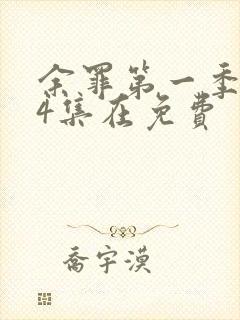 余罪第一季
4集在免费
乔宇漠